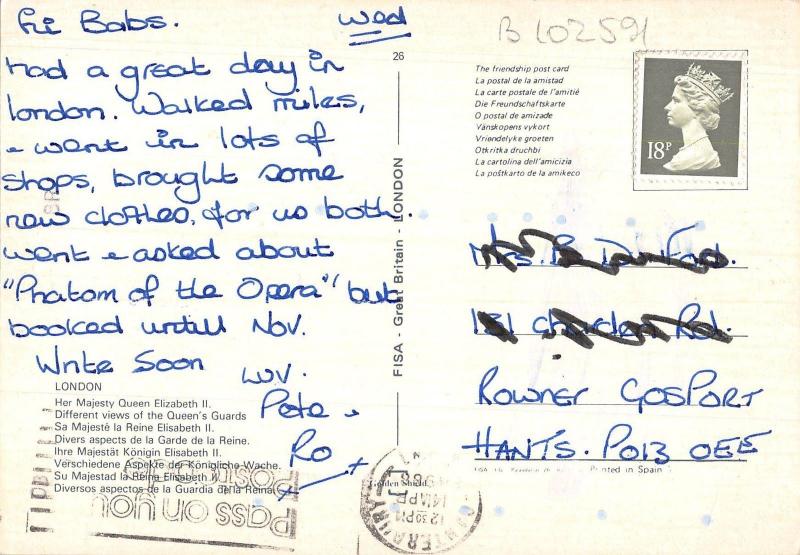 Hi Babs. Wed
Had a great day in
London. Walked miles,
& went in lots of
shops, brought some
new clothes, for us both.
went & asked about
"Phatom of the Opera" but
booked untill Nov.
Write Soon
Luv.
Pete &
Ro
x
LONDON
Her Majesty Queen Elizabeth II.
Different views of the Queen's Guards
Sa Majesté la Reine Elisabeth II.
Divers aspects de la Garde de la Reine.
Ihre Majestät Königin Elisabeth II.
Verschiedene Aspekte der Königliche Wache.
Su Majestad la Reina Elisabeth II.
Diversos aspectos de la Guardia de la Reina
Pass on your
Post
26
FISA - Great Britain - LONDON
B L02591
The friendship post card
La postal de la amistad
La carte postale de l'amitié
Die Freundschaftskarte
O postal de amizade
Vänskopens vykort
Vriendelyke groeten
Otkritka druchbi
La cartolina dell'amicizia
La poŝtkarto de la amikeco
18P
Mrs. B.
131 Rd.
Rowner Gosport
HANTS. PO13 OEE
Golden Shield
Printed in Spain
12 30PM
14 APR
CANTERBURY